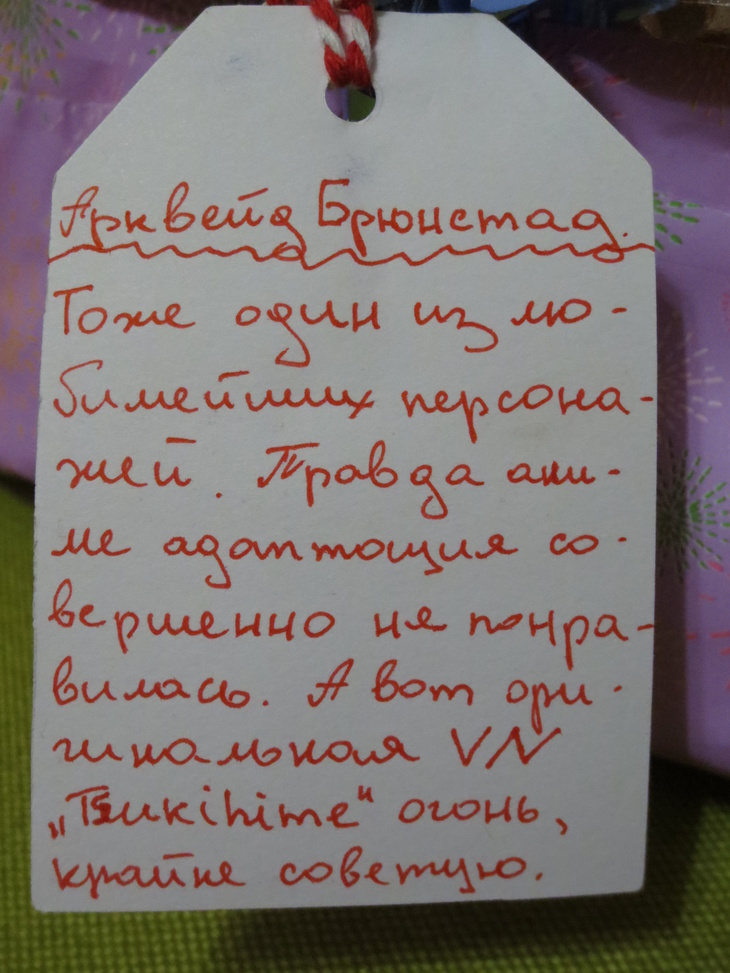 Арквейд Брюнстад.
Тоже один из лю-
бимейших персона-
жей. Правда ани-
ме адаптация со-
вершенно не понра-
вилась. А вот ори-
гинальная VN
„Tsukihime“ огонь,
крайне советую.